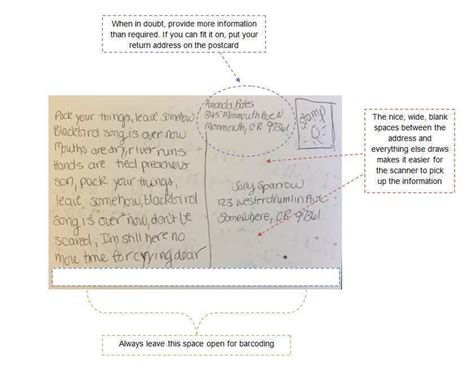 When in doubt, provide more information
than required. If you can fit it on, put your
return address on the postcard
Pack your things, leave somehow
Blackbird song is over now
Mouths are dry, river runs
Hands are tied preachers
son, pack your things,
leave somehow, blackbird
song is over now, don't be
scared, I'm still here no
more time for crying dear
Amanda Pates
345 Monmouth Ave N
Monmouth, OR 97361
Stamp
Silly Sparrow
123 Westerdrumlin Ave
Somewhere, OR 97361
The nice, wide, blank
spaces between the
address and
everything else draws
makes it easier for
the scanner to pick
up the information
Always leave this space open for barcoding